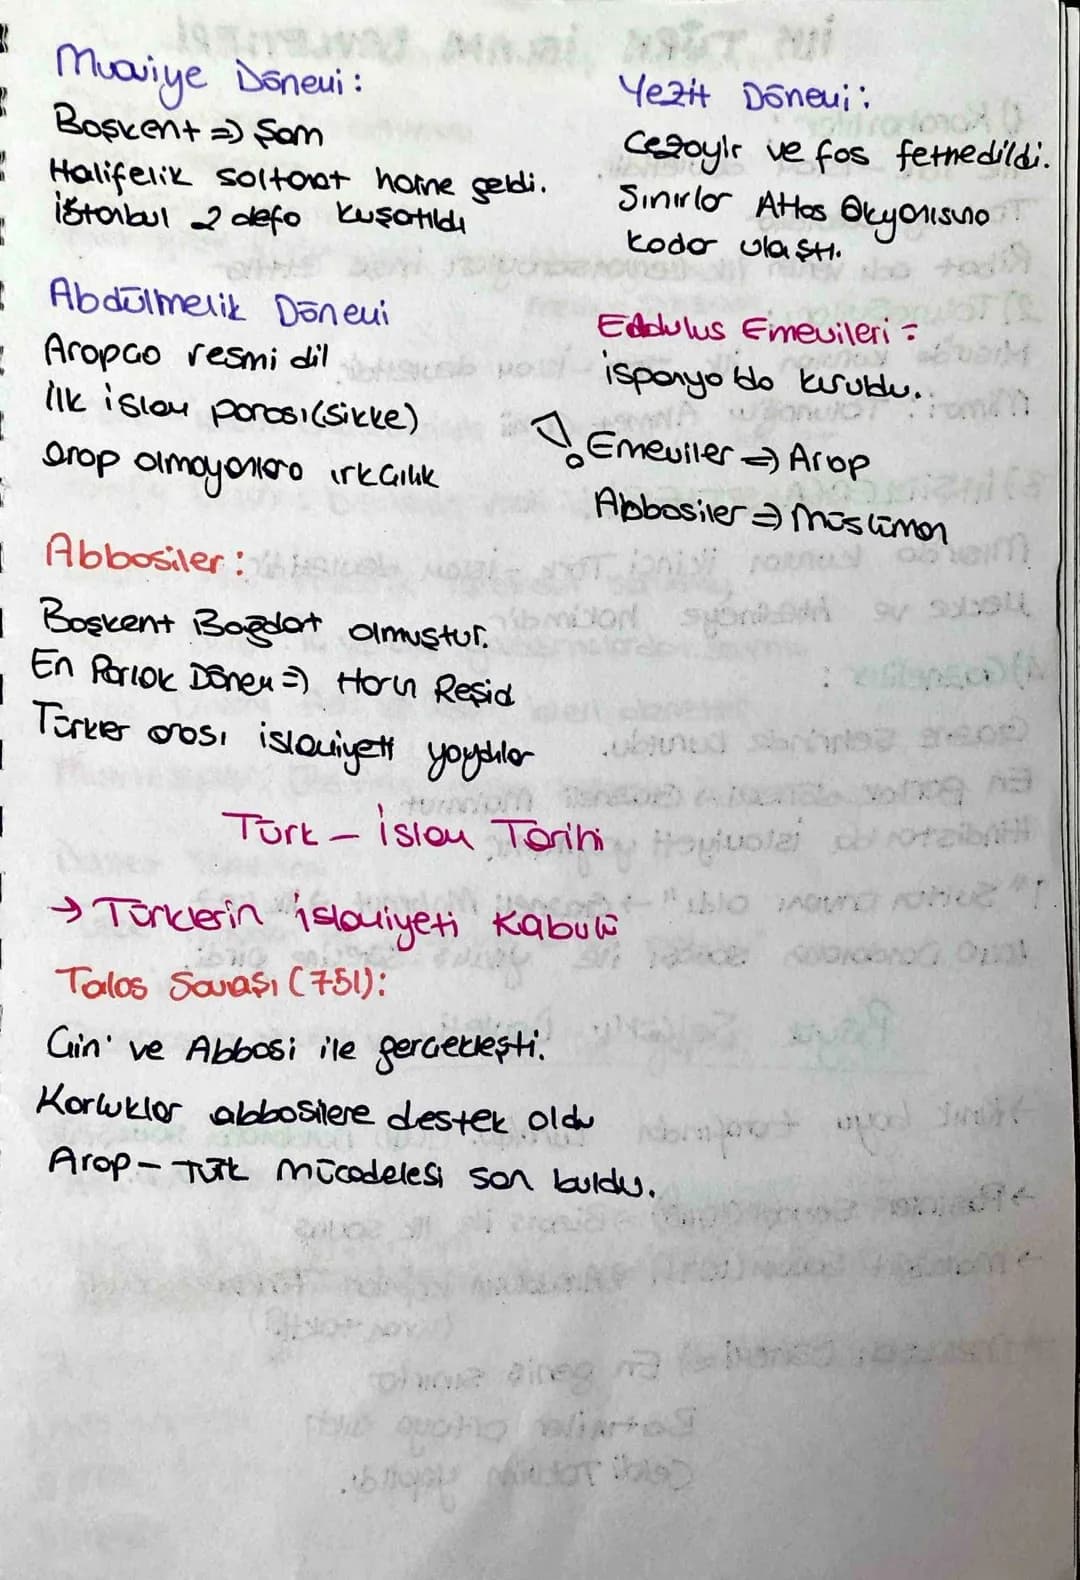 Muaviye Dönemi:
Başkent => Şam
Halifelik saltanat haline geldi.
İstanbul 2 defa kuşatıldı
Yezit Dönemi:
Cezayir ve fas fethedildi.
Sınırlar Atlas Okyanusuna
kadar ulaştı.
Abdülmelik Dönemi
Arapça resmi dil
İlk islam parası (sikke)
arap olmayanlara ırkçılık
Endülüs Emevileri =
ispanya'da kuruldu.
! Emeviler => Arap
Abbasiler => Müslüman
Abbasiler:
Başkent Bağdat olmuştur.
En Parlak Dönem => Harun Reşid
Türkler arası islamiyeti yaydılar
Türk - İslam Tarihi
→ Türklerin islamiyeti Kabulü
Talas Savaşı (751):
Çin' ve Abbasi ile gerçekleşti.
Karluklar abbasilere destek oldu
Arap - Türk mücadelesi son buldu.